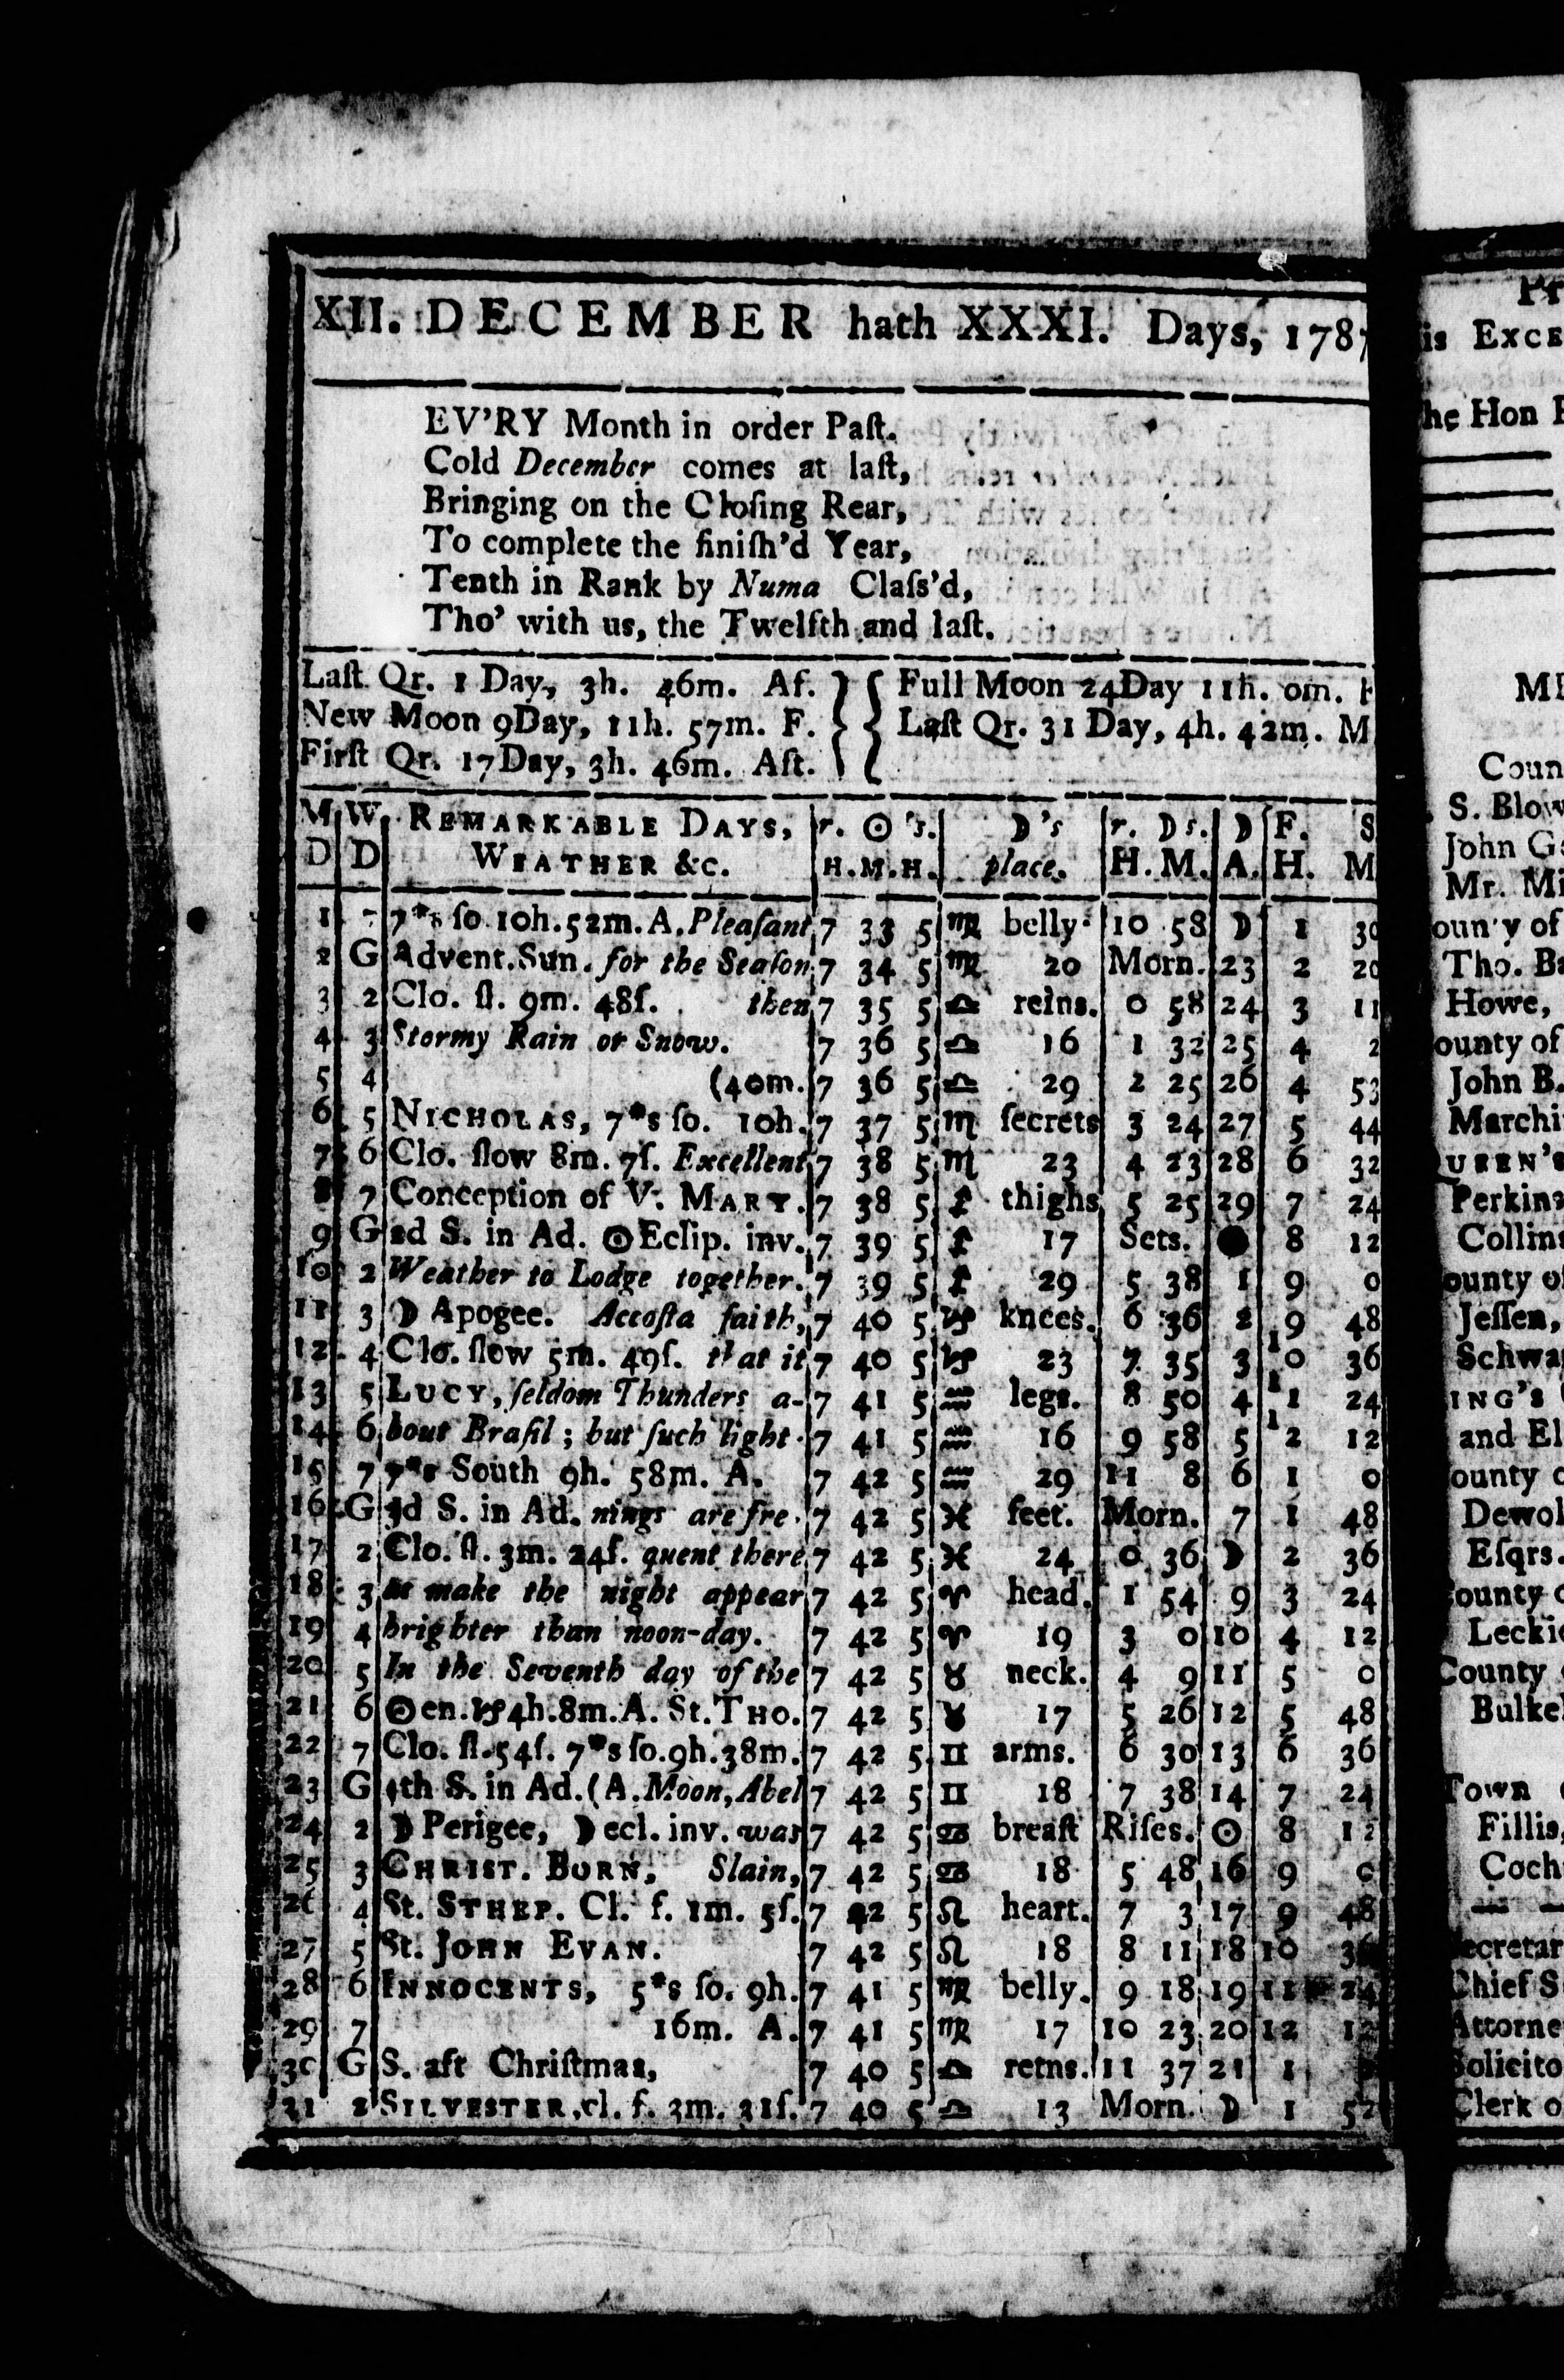 XII. DECEMBER hath XXXI. Days, 1787
EV'RY Month in order Paſt.
Cold December comes at laſt,
Bringing on the Cloſing Rear,
To complete the finiſh'd Year,
Tenth in Rank by Numa Claſs'd,
Tho' with us, the Twelfth and laſt.
Laſt Qr. 1 Day, 3h. 46m. Af.
New Moon 9Day, 11h. 57m. F.
Firſt Qr. 17Day, 3h. 46m. Aft.
Full Moon 24Day 11h. 0m.
Laſt Qr. 31 Day, 4h. 42m. M
M D W D REMARKABLE DAYS, WEATHER &c. r. ☉'s. H.M.H. ☽'s place. r. ☽s. H. M. ☽ A. F. S H. M
1 7 7*s ſo. 10h.52m.A.Pleaſant 7 33 5 ♍ belly 10 58 ☽ 1 30
2 G Advent.Sun. for the Seaſon 7 34 5 ♍ 20 Morn. 23 2 20
3 2 Clo. ſl. 9m. 48ſ. then 7 35 5 ♎ reins. 0 58 24 3 11
4 3 Stormy Rain or Snow. 7 36 5 ♎ 16 1 32 25 4 2
5 4 (40m. 7 36 5 ♎ 29 2 25 26 4 53
6 5 NICHOLAS, 7*s ſo. 10h. 7 37 5 ♏ ſecrets 3 24 27 5 44
7 6 Clo. ſlow 8m. 7ſ. Excellent 7 38 5 ♏ 23 4 23 28 6 32
8 7 Conception of V. MARY. 7 38 5 ♐ thighs 5 25 29 7 24
9 G 2d S. in Ad. ☉Eclip. inv. 7 39 5 ♐ 17 Sets. ● 8 12
10 2 Weather to Lodge together. 7 39 5 ♐ 29 5 38 1 9 0
11 3 ☽ Apogee. Accoſta ſaith, 7 40 5 ♑ knees. 6 36 2 9 48
12 4 Clo. ſlow 5m. 49ſ. that it 7 40 5 ♑ 23 7 35 3 10 36
13 5 LUCY, ſeldom Thunders a- 7 41 5 ♒ legs. 8 50 4 11 24
14 6 bout Braſil; but ſuch light- 7 41 5 ♒ 16 9 58 5 12 12
15 7 7*s South 9h. 58m. A. 7 42 5 ♒ 29 11 8 6 1 0
16 G 3d S. in Ad. nings are fre- 7 42 5 ♓ feet. Morn. 7 1 48
17 2 Clo. ſl. 3m. 24ſ. quent there 7 42 5 ♓ 24 0 36 ☽ 2 36
18 3 as make the night appear 7 42 5 ♈ head. 1 54 9 3 24
19 4 brighter than noon-day. 7 42 5 ♈ 19 3 0 10 4 12
20 5 In the Seventh day of the 7 42 5 ♉ neck. 4 9 11 5 0
21 6 ☉en.♑4h.8m.A. St.THO. 7 42 5 ♉ 17 5 26 12 5 48
22 7 Clo. ſl.54ſ. 7*s ſo.9h.38m. 7 42 5 ♊ arms. 6 30 13 6 36
23 G 4th S. in Ad.(A.Moon, Abel 7 42 5 ♊ 18 7 38 14 7 24
24 2 ☽ Perigee, ☽ ecl. inv. was 7 42 5 ♋ breaſt Riſes. ☉ 8 12
25 3 CHRIST. BORN, Slain, 7 42 5 ♋ 18 5 48 16 9 0
26 4 St. STHEP. Cl. f. 1m. 5ſ. 7 42 5 ♌ heart. 7 3 17 9 48
27 5 St. JOHN EVAN. 7 42 5 ♌ 18 8 11 18 10 36
28 6 INNOCENTS, 5*s ſo. 9h. 7 41 5 ♍ belly. 9 18 19 11 24
29 7 16m. A. 7 41 5 ♍ 17 10 23 20 12 12
30 G S. aft Chriſtmas, 7 40 5 ♎ reins. 11 37 21 1
31 2 SILVESTER, cl. f. 3m. 31ſ. 7 40 5 ♎ 13 Morn. ☽ 1 52
is EXCE
he Hon
Coun
S. Blow
John G
Mr. Mi
oun'y of
Tho. B
Howe,
ounty of
John B.
Marchi
UEEN's
Perkins
Collins
ounty of
Jeſſen,
Schwa
ING's
and El
ounty
Dewol
Eſqrs.
ounty
Leckie
County
Bulke
Town
Fillis,
Coch
ecretar
Chief S
Attorne
Solicito
Clerk o